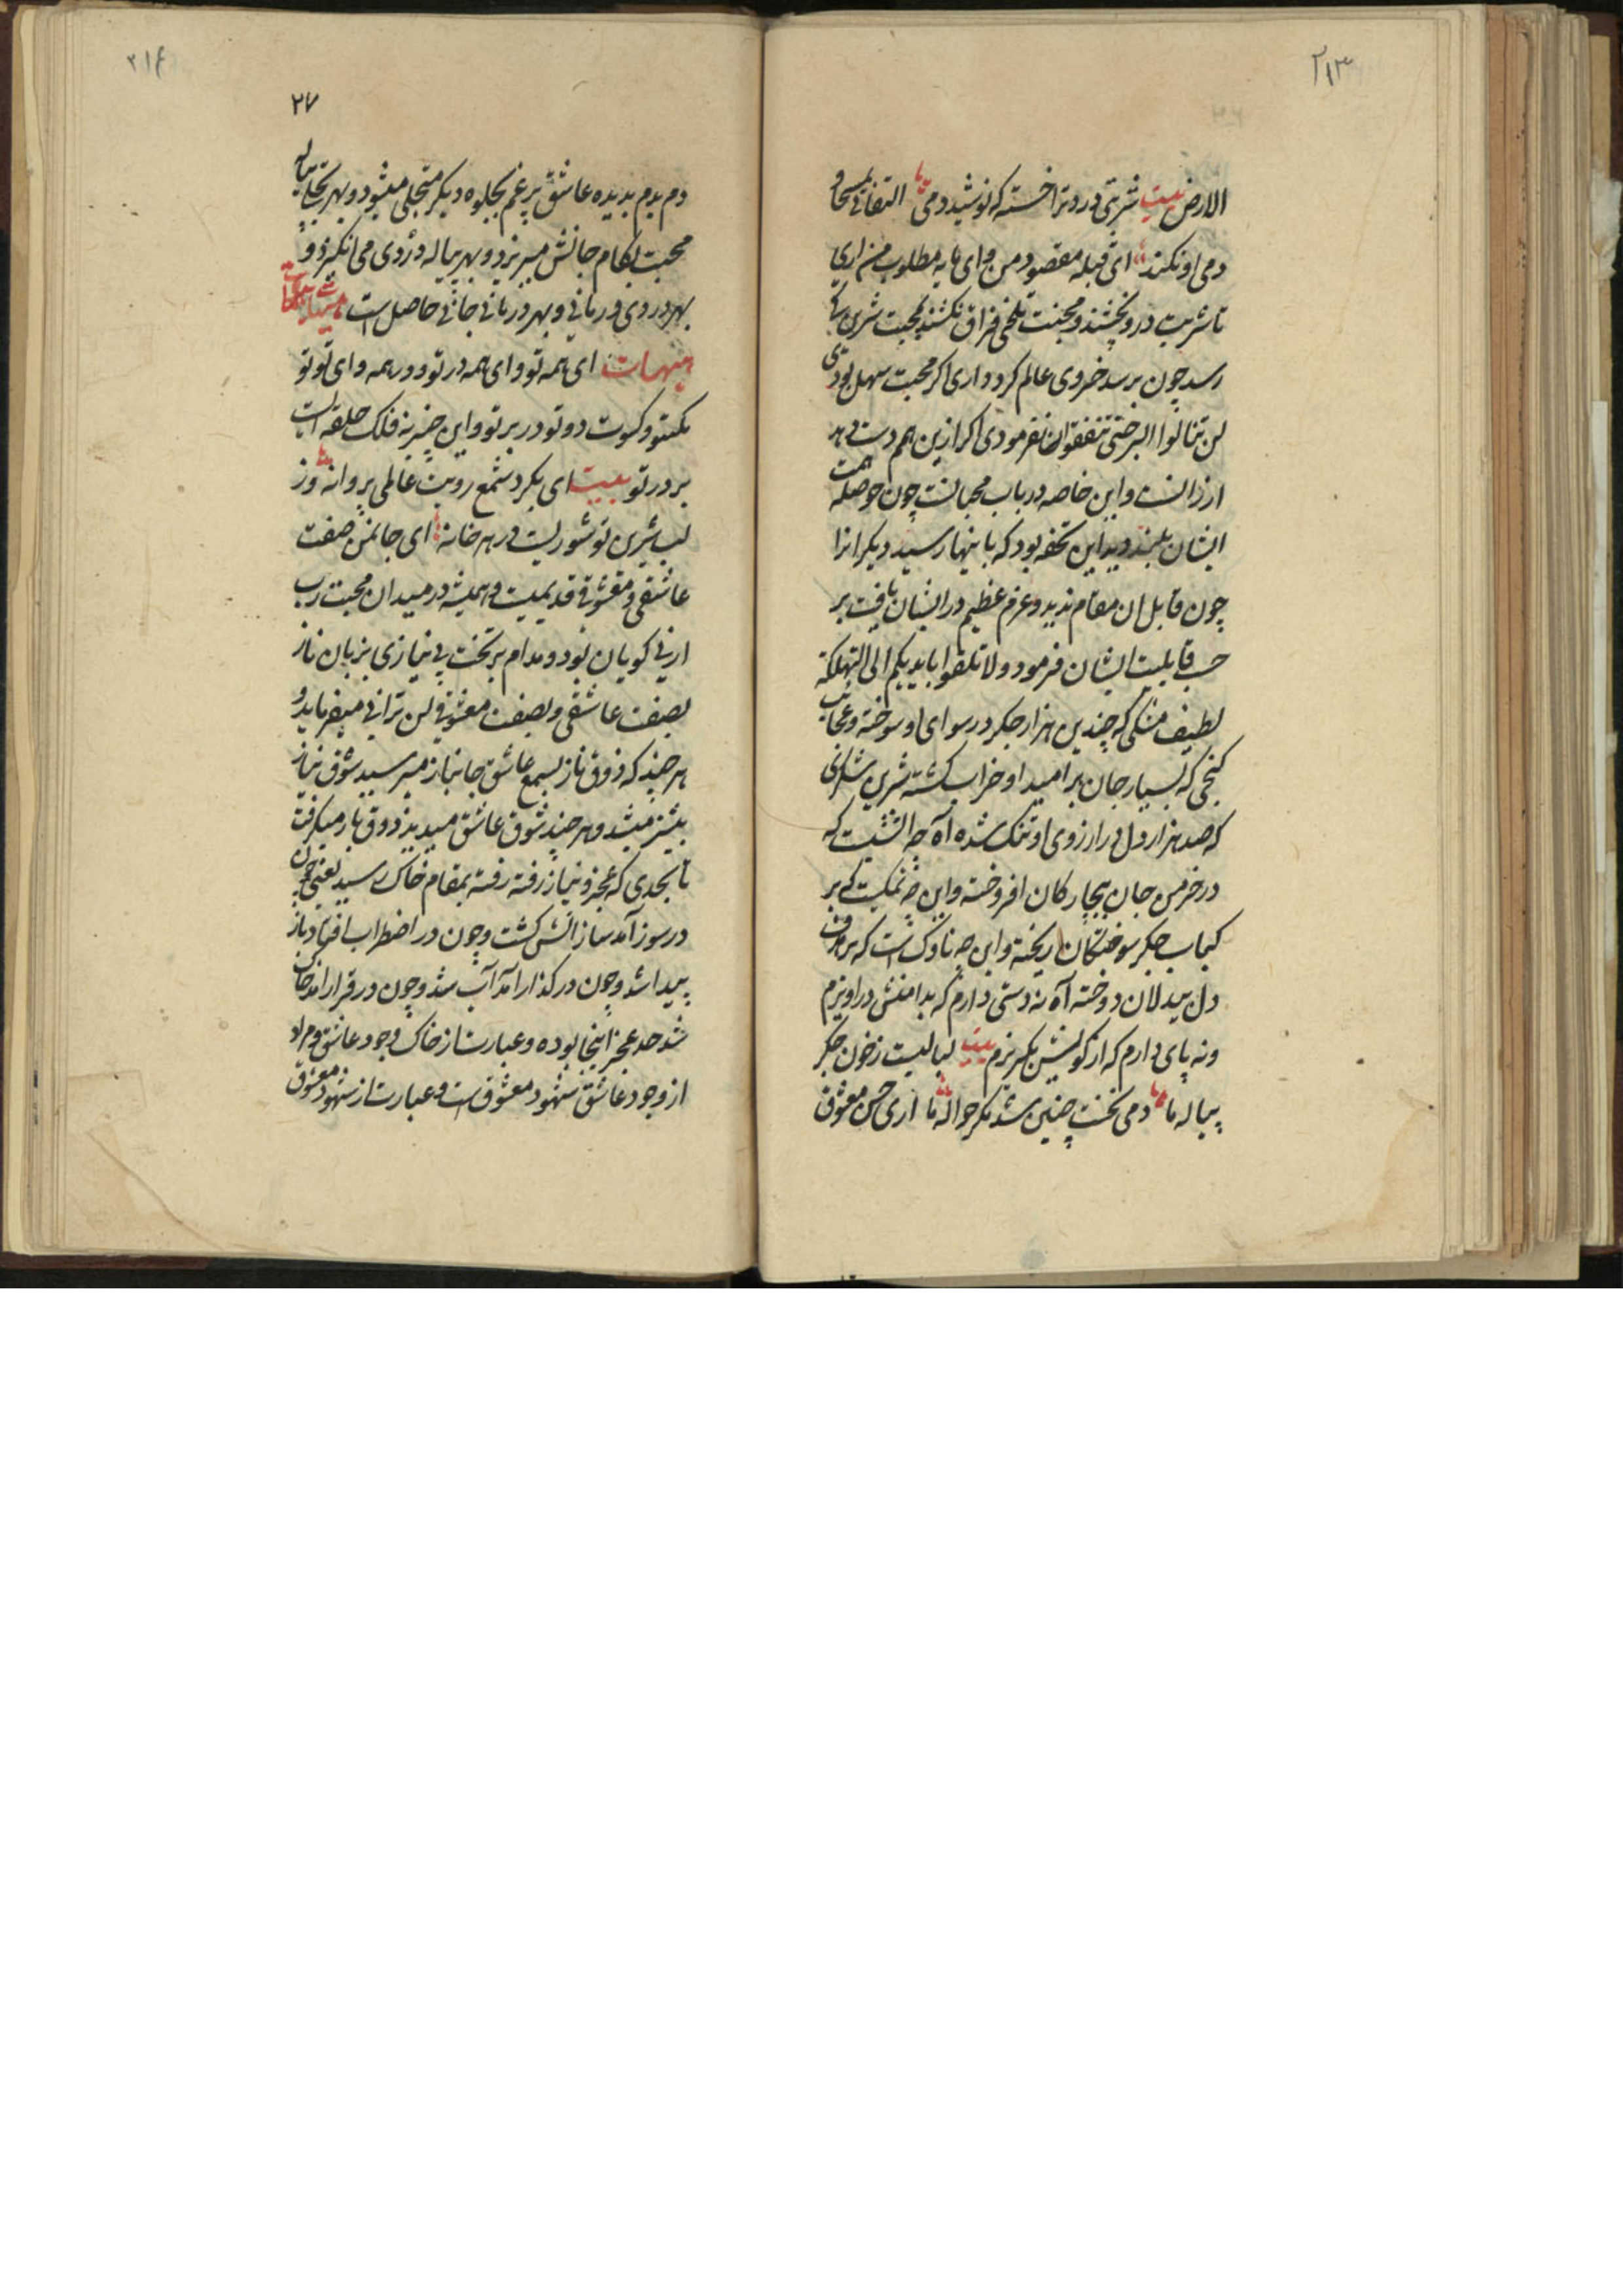 ۲۱۳
الارض بیت شربتی درد ترا خسته که نوشید دمی التفاتی بمسیحا و
دمی او نکند ای قبله مقصود من وای مایه مطلوب من اری
تا شربت درد نچشند و محبت تلخی فراق نکشند بمحبت شیرین کی
رسد چون برسد خسروی عالم کرد داری اکر محبت سهل بودی
لن تنالوا البر حتی تنفقوا نفرمودی اکر ازین هم دست دهد
ارزانست و این خاصه در باب محبانست چون حوصله همت
ایشان بلند دید این تحفه بود که باینها رسید دیکر انرا
چون قابل ان مقام ندید و عزم عظیم در ایشان نیافت بر
حسب قابلیت ایشان فرمود ولا تلقوا بایدیکم الی التهلکة
لطیف مشکی که چندین هزار جکر در سوای او سوخته و عجائب
کنجی که بسیار جان بر امید او خراب کشته شیرین
که صد هزار دل در ارزوی او تنک شده آه چه اتشیست که
در خرمن جان بیچارکان افروخته و این چه نمکیست که بر
کباب جکر سوختکان ریخته و این چه ناوک است که بر هدف
دل بیدلان دوخته آه نه دستی دارم که بدامنش در اویزم
ونه پای دارم که از کویش بکریزم بیت لبالبست ز خون جکر
پیاله ما دمی نخست چنین شد مکر حواله ما اری حسن معشوق
۲۱۴
۲۷
دم بدم بدیده عاشق پر غم بجلوه دیکر متجلی میشود و بهر تجلی پیاله
محبت بکام جانش میریزد و بهر پیاله دردی می انکیزد و
بهر دردی درمانی و بهر درمانی جانی حاصل است
هیهات ای همه تو وای همه در تو و در همه وای تو تو
یکتو و کسوت دو تو در بر تو و این چنبر نه فلک حلقه ایست
بر در تو بیت ای بکرد شمع رویت عالمی پروانه وز
لب شیرین تو شوریست در هر خانه ای جان من صفت
عاشقی و معشوقی قدیمیست و همیشه در میدان محبت رب
ارنی کویان بود و مدام بر تخت بی نیازی بزبان ناز
بصفت عاشقی و بصفت معشوقی لن ترانی میفرماید و
هر چند که ذوق ناز بسمع عاشق جانباز میرسید شوق نیاز
بیشتر میشد و هر چند شوق عاشق میدید ذوق ناز میکرفت
تا بحدی که عجز و نیاز رفته رفته بمقام خاک رسید یعنی چون
در سوز آمد ساز اتش کشت و چون در اضطراب افتاد باز
پیدا شد و چون در کداز آمد آب شد و چون در قرار امد خاک
شد حد عجز اینجا بوده و عبارت از خاک وجود عاشق و مراد
از وجود عاشق شهود معشوق است و عبارت از شهود معشوق